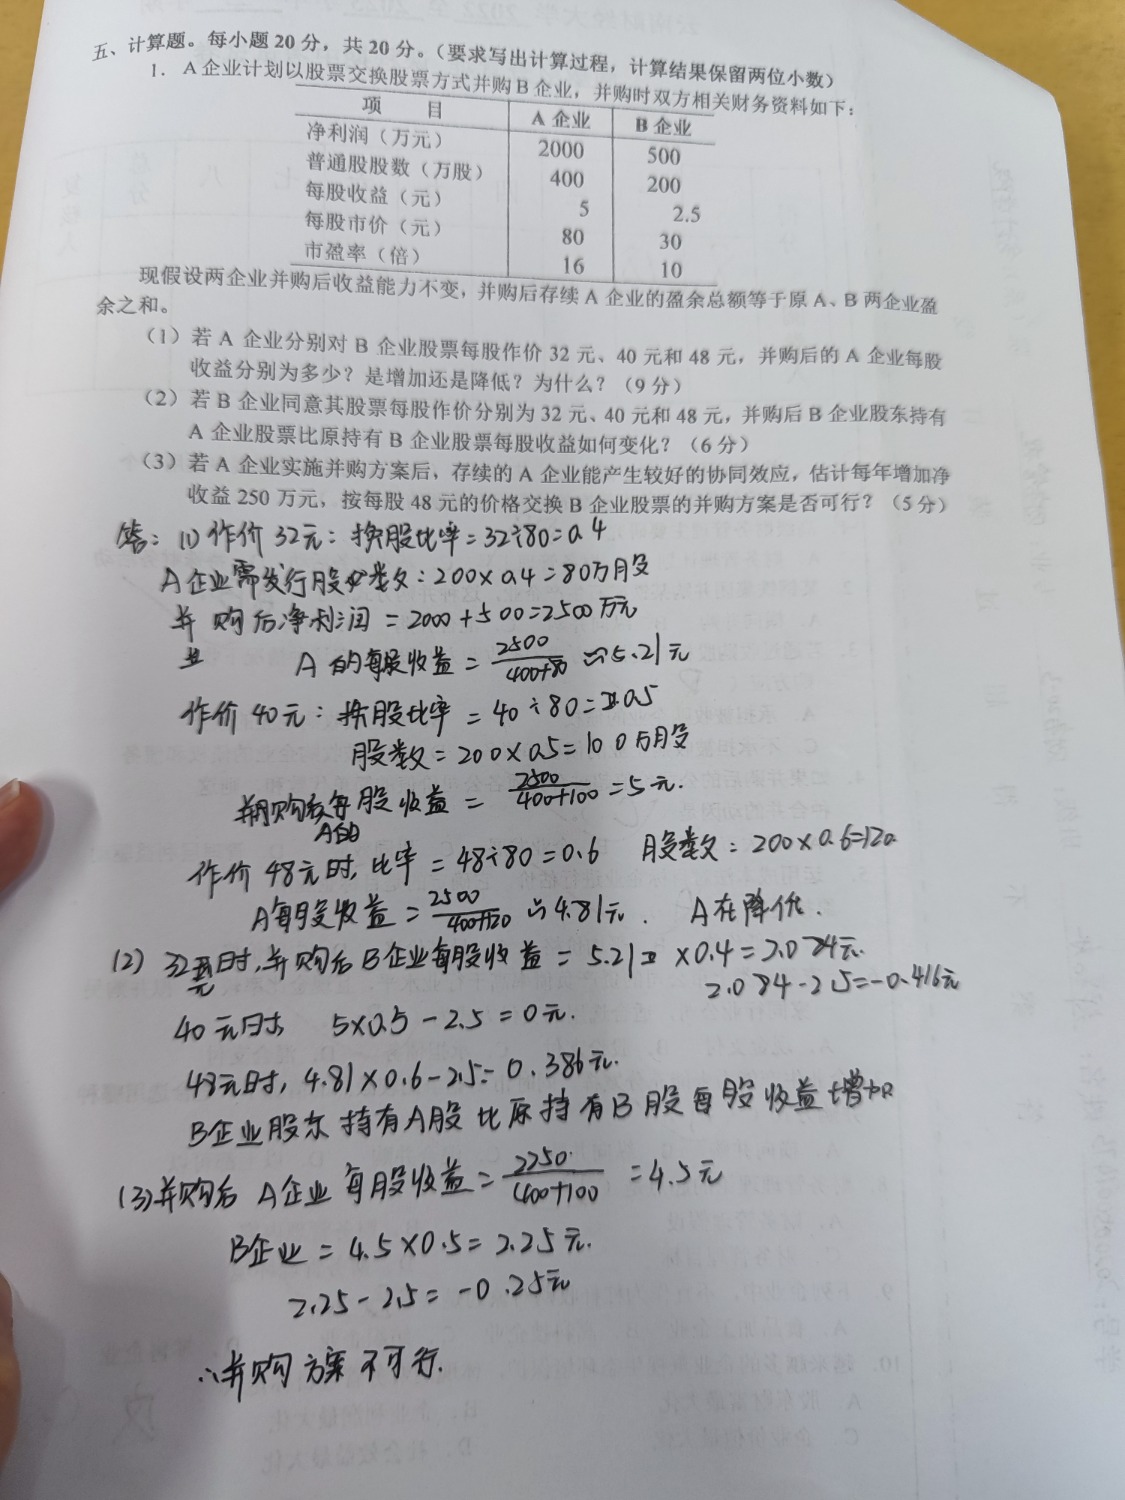 五、计算题。每小题20分，共20分。（要求写出计算过程，计算结果保留两位小数）
1. A企业计划以股票交换股票方式并购B企业，并购时双方相关财务资料如下：
项 目 A企业 B企业
净利润（万元） 2000 500
普通股股数（万股） 400 200
每股收益（元） 5 2.5
每股市价（元） 80 30
市盈率（倍） 16 10
现假设两企业并购后收益能力不变，并购后存续A企业的盈余总额等于原A、B两企业盈
余之和。
（1）若A企业分别对B企业股票每股作价32元、40元和48元，并购后的A企业每股
收益分别为多少？是增加还是降低？为什么？（9分）
（2）若B企业同意其股票每股作价分别为32元、40元和48元，并购后B企业股东持有
A企业股票比原持有B企业股票每股收益如何变化？（6分）
（3）若A企业实施并购方案后，存续的A企业能产生较好的协同效应，估计每年增加净
收益250万元，按每股48元的价格交换B企业股票的并购方案是否可行？（5分）
答：(1)作价32元：换股比率=32÷80=0.4
A企业需发行股数：200×0.4=80万股
并购后净利润=2000+500=2500万元
A的每股收益=2500/400+80≈5.21元
作价40元：换股比率=40÷80=0.5
股数=200×0.5=100万股
并购后A的每股收益=2500/400+100=5元.
作价48元时,比率=48÷80=0.6 股数：200×0.6=120
A每股收益=2500/400+120≈4.81元. A在降低.
(2) 32元时,并购后B企业每股收益=5.21×0.4=2.084元.
2.084-2.5=-0.416元
40元时, 5×0.5-2.5=0元.
48元时, 4.81×0.6-2.5=0.386元.
B企业股东持有A股比原持有B股每股收益增加
(3)并购后A企业每股收益=2250/400+100=4.5元
B企业=4.5×0.5=2.25元.
2.25-2.5=-0.25元
∴并购方案不可行.